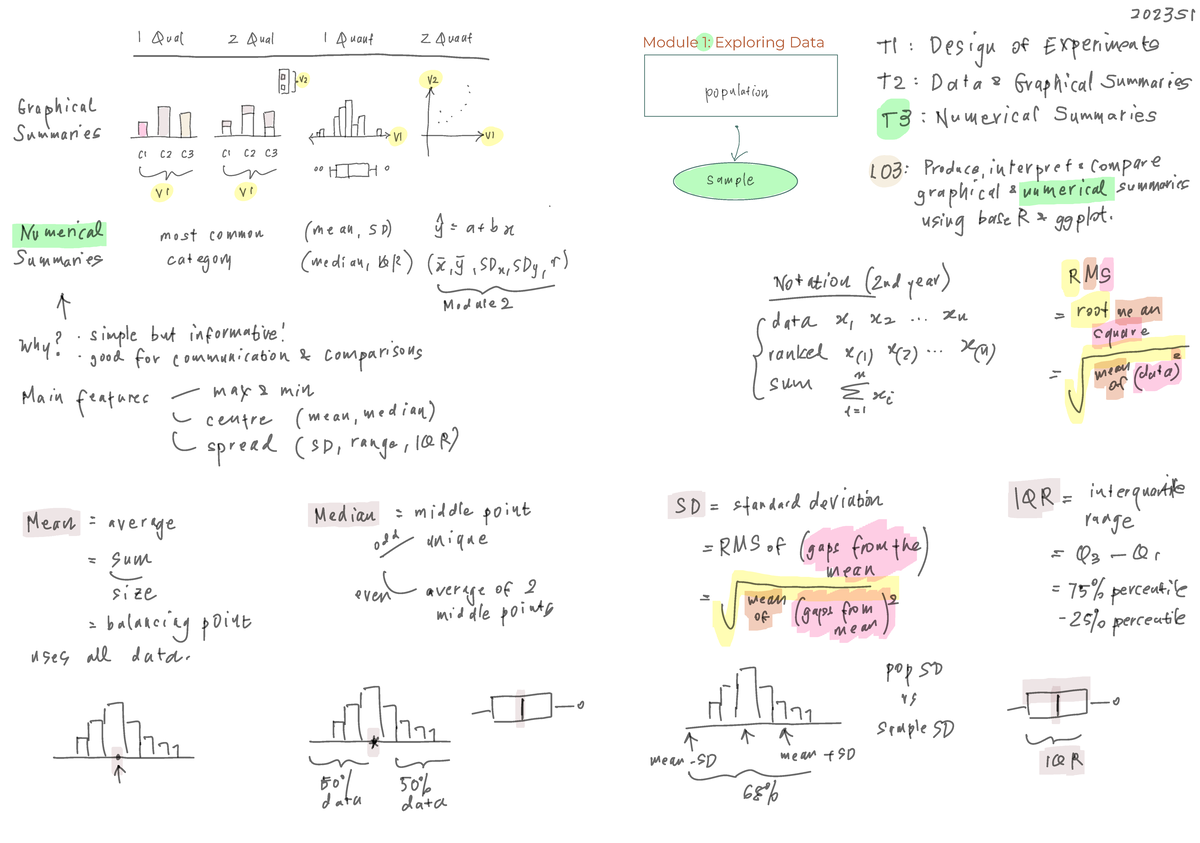 1 Qual 2 Qual 1 Quant 2 Quant
V2
V2
Graphical
Summaries
V1
V1
C1 C2 C3 C1 C2 C3
V1 V1
Numerical
Summaries
most common
category
(mean, SD)
(median, IQR)
ŷ = a + bx
(x̄, ȳ, SDx, SDy, r)
Module 2
Why? · simple but informative!
· good for communication & comparisons
Main features
max & min
centre (mean, median)
spread (SD, range, IQR)
Mean = average
= sum
size
= balancing point
uses all data.
Median = middle point
odd
unique
even
average of 2
middle points
50%
data
50%
data
2023S1
Module 1: Exploring Data
population
sample
T1: Design of Experiments
T2: Data & Graphical Summaries
T3: Numerical Summaries
LO3: Produce, interpret & compare
graphical & numerical summaries
using base R & ggplot.
Notation (2nd year)
data x₁ x₂ ... xₙ
ranked x(1) x(2) ... x(n)
sum
n
∑ xᵢ
i=1
RMS
= root mean
square
= √ mean
of (data)²
SD = standard deviation
= RMS of (gaps from the
mean)
= √ mean
of (gaps from
mean)²
pop SD
vs
sample SD
mean - SD mean + SD
68%
IQR = interquartile
range
= Q₃ - Q₁
= 75% percentile
- 25% percentile
IQR